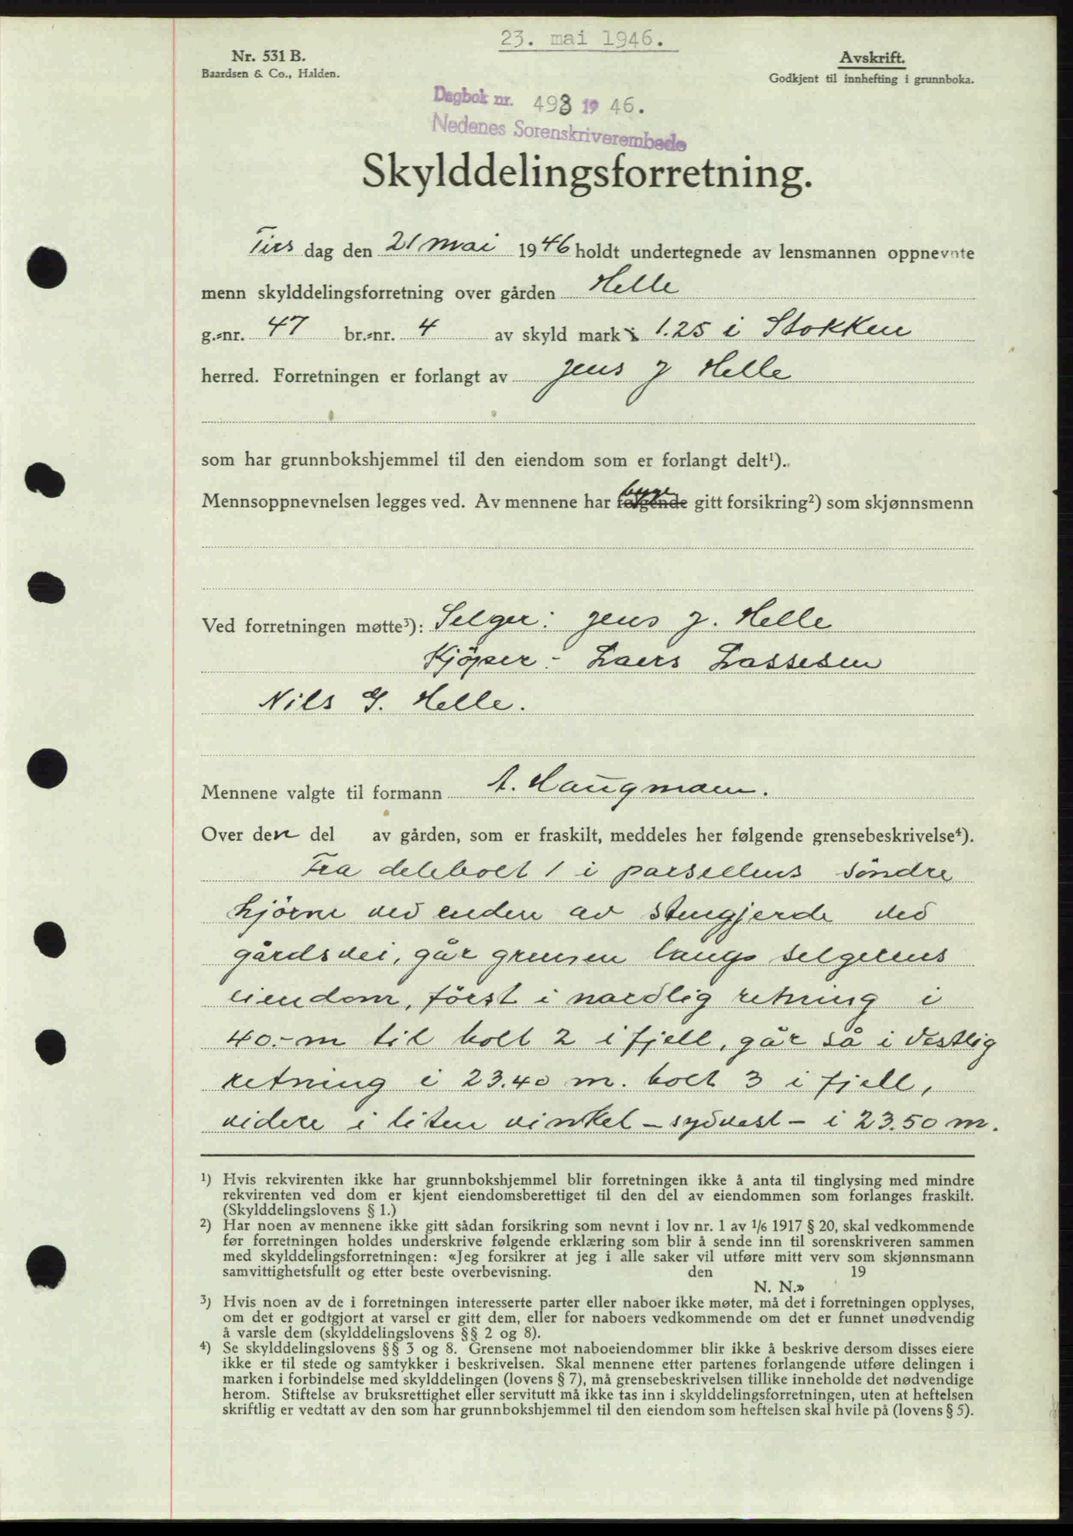 23. mai 1946.
Nr. 531 B.
Baardsen & Co., Halden.
Avskrift.
Godkjent til innhefting i grunnboka.
Dagbok nr. 493 19 46.
Nedenes Sorenskriverembede
Skylddelingsforretning.
Tirsdag den 21 mai 1946 holdt undertegnede av lensmannen oppnevnte
menn skylddelingsforretning over gården Helle
g.-nr. 47 br.-nr. 4 av skyld mark 1.25 i Stokken
herred. Forretningen er forlangt av Jens J Helle
som har grunnbokshjemmel til den eiendom som er forlangt delt¹).
Mennsoppnevnelsen legges ved. Av mennene har følgende gitt forsikring²) som skjønnsmenn
Ved forretningen møtte³): Selger: Jens J. Helle
Kjöper:- Laers Lassesen
Nils G. Helle.
Mennene valgte til formann A. Haugmoen.
Over den del av gården, som er fraskilt, meddeles her følgende grensebeskrivelse⁴).
Fra delebolt 1 i parsellens söndre
hjörne ved enden av stengjerde ved
gårdsvei, går grensen langs selgerens
eiendom, först i nordlig retning i
40.- m til bolt 2 i fjell, går så i vestlig
retning i 23.40 m. bolt 3 i fjell,
videre i liten vinkel - sydvest - i 23.50 m.
¹) Hvis rekvirenten ikke har grunnbokshjemmel blir forretningen ikke å anta til tinglysing med mindre
rekvirenten ved dom er kjent eiendomsberettiget til den del av eiendommen som forlanges fraskilt.
(Skylddelingslovens § 1.)
²) Har noen av mennene ikke gitt sådan forsikring som nevnt i lov nr. 1 av 1/6 1917 § 20, skal vedkommende
før forretningen holdes underskrive følgende erklæring som blir å sende inn til sorenskriveren sammen
med skylddelingsforretningen: «Jeg forsikrer at jeg i alle saker vil utføre mitt verv som skjønnsmann
samvittighetsfullt og etter beste overbevisning. den 19
N. N.»
³) Hvis noen av de i forretningen interesserte parter eller naboer ikke møter, må det i forretningen opplyses,
om det er godtgjort at varsel er gitt dem, eller for naboers vedkommende om det er funnet unødvendig
å varsle dem (skylddelingslovens §§ 2 og 8).
⁴) Se skylddelingslovens §§ 3 og 8. Grensene mot naboeiendommer blir ikke å beskrive dersom disses eiere
ikke er til stede og samtykker i beskrivelsen. Skal mennene etter partenes forlangende utføre delingen i
marken i forbindelse med skylddelingen (lovens § 7), må grensebeskrivelsen tillike inneholde det nødvendige
herom. Stiftelse av bruksrettighet eller servitutt må ikke tas inn i skylddelingsforretningen, uten at heftelsen
skriftlig er vedtatt av den som har grunnbokshjemmel til den eiendom som heftelsen skal hvile på (lovens § 5).